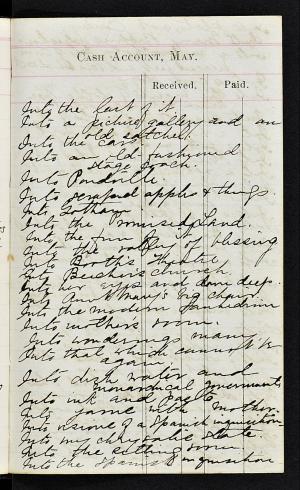 CASH ACCOUNT, MAY.
Received. Paid.
Into the last of it
Into a picture gallery and an
old satchel
Into the cars
Into an old fashioned
stage coach.
Into Pondville.
Into scraped apples & things.
Into Gotham
Into the promised Land.
Into the
Into the valley of blessing
Into Booth's theatre
Into Beecher's church.
Into her eyes and down deep.
Into Aunt Mary's big chair.
Into the modern Sanhedrim
Into mothers room.
Into wonderings many
Into that which cannot be
again
Into dish water and
monarchical governments
Into ink and paste
Into game with mother.
Into visions of a Spanish inquisition
Into my chrysalis state.
Into the sitting room
Into the Spanish inquisition